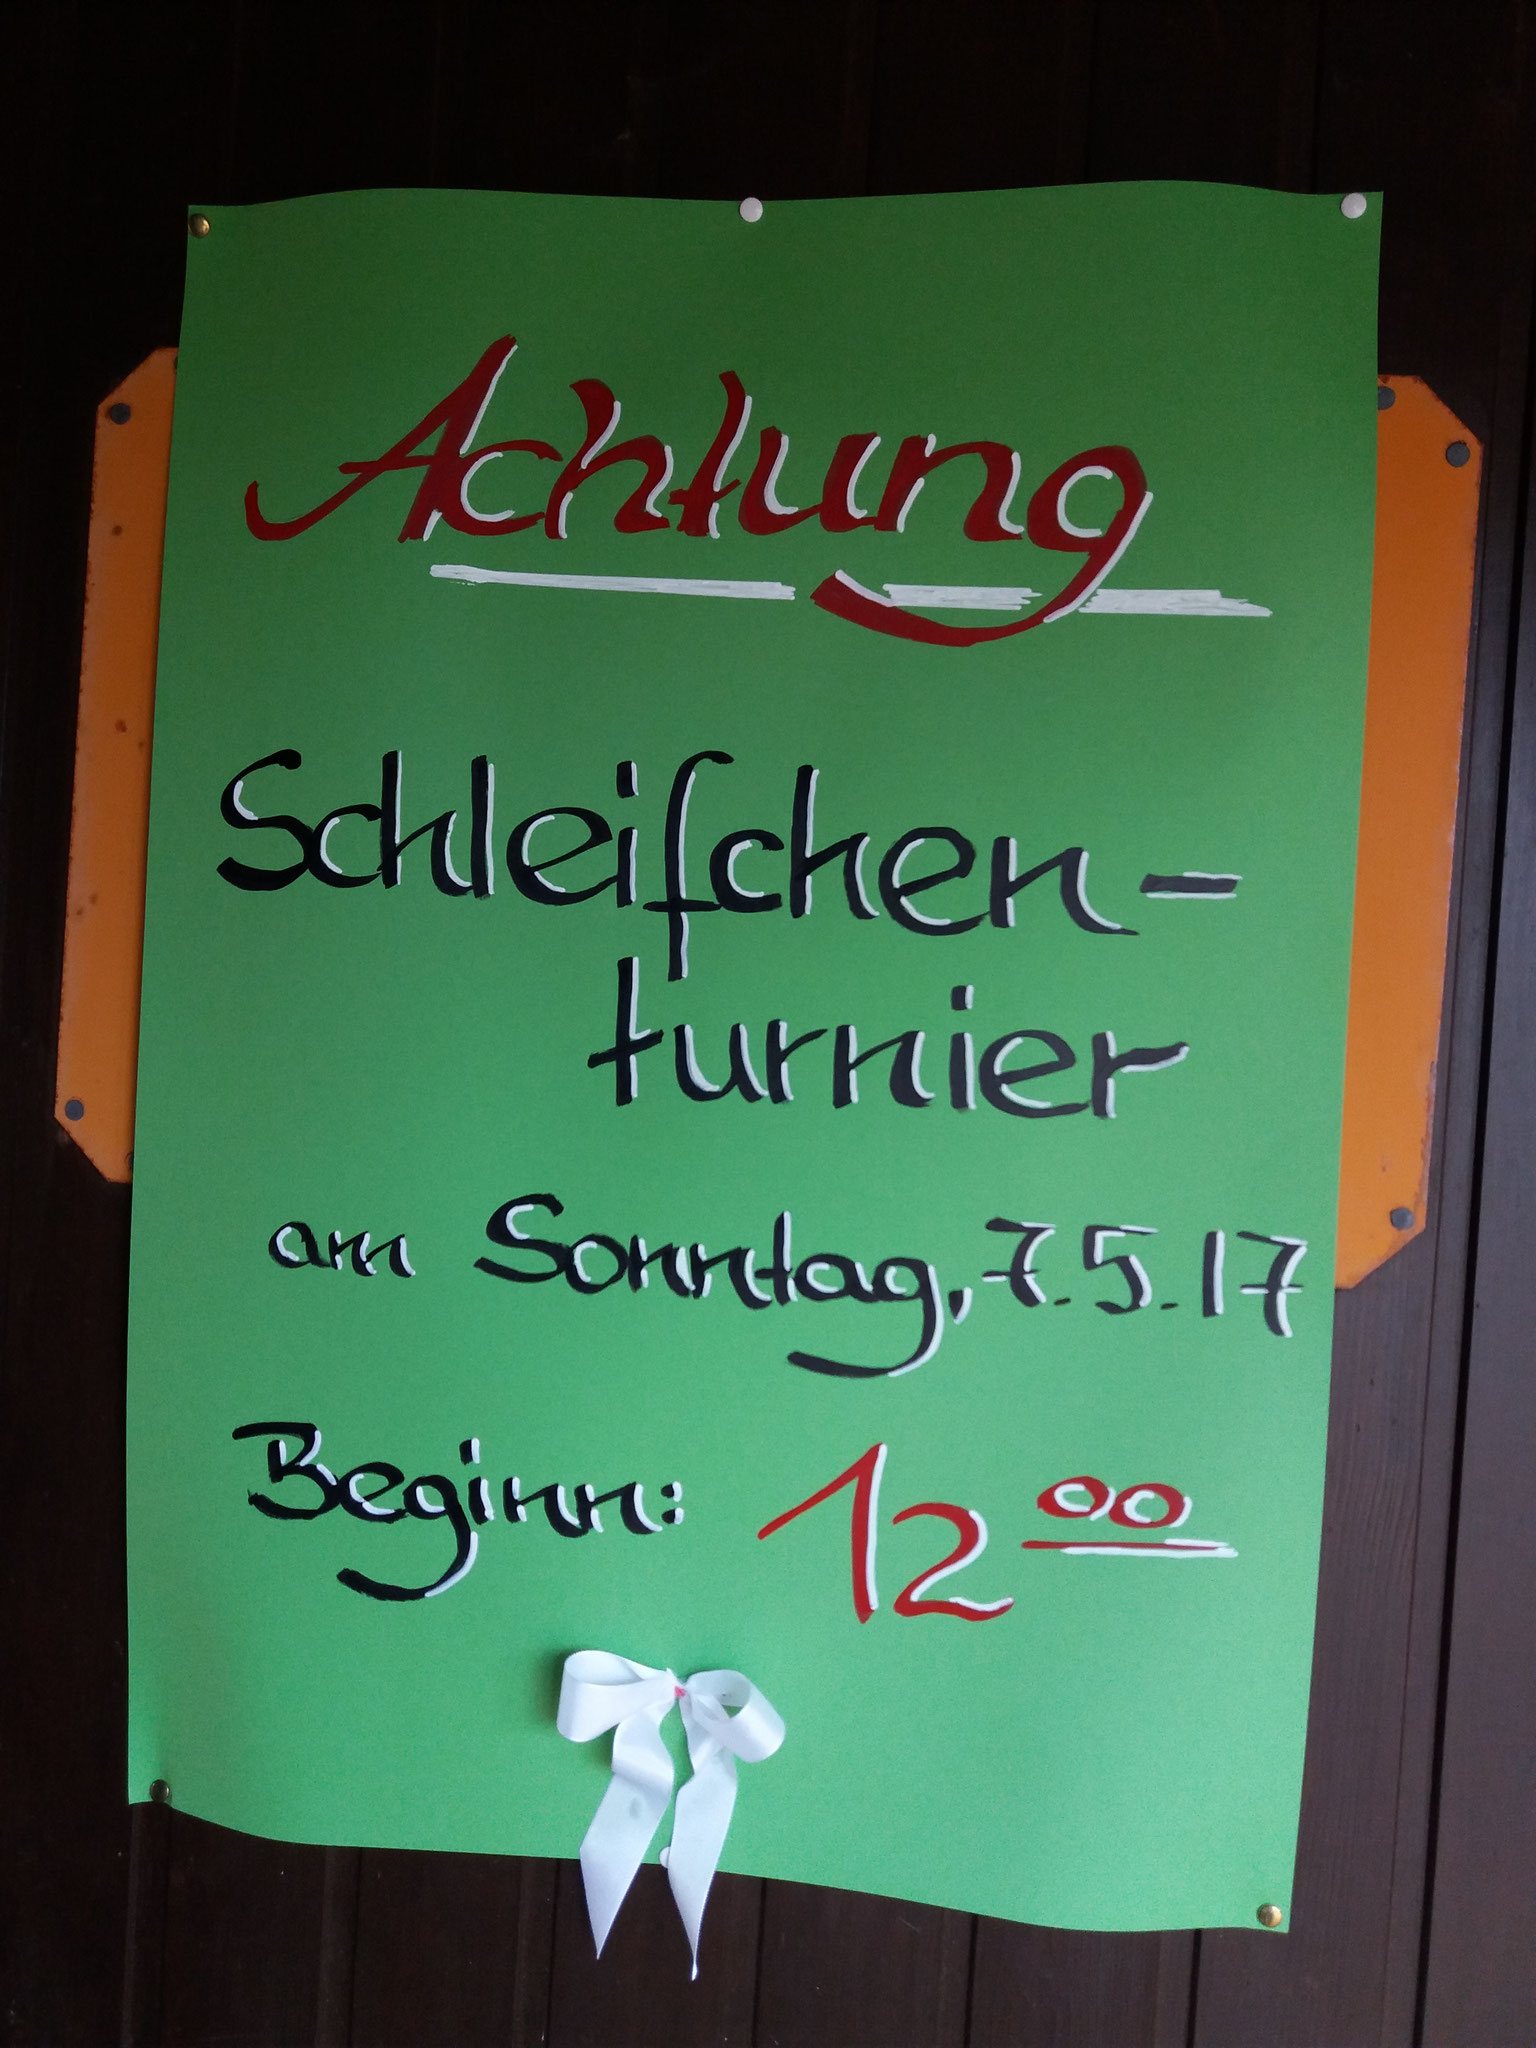 Achtung
Schleifchen-
turnier
am Sonntag, 7.5.17
Beginn: 12⁰⁰